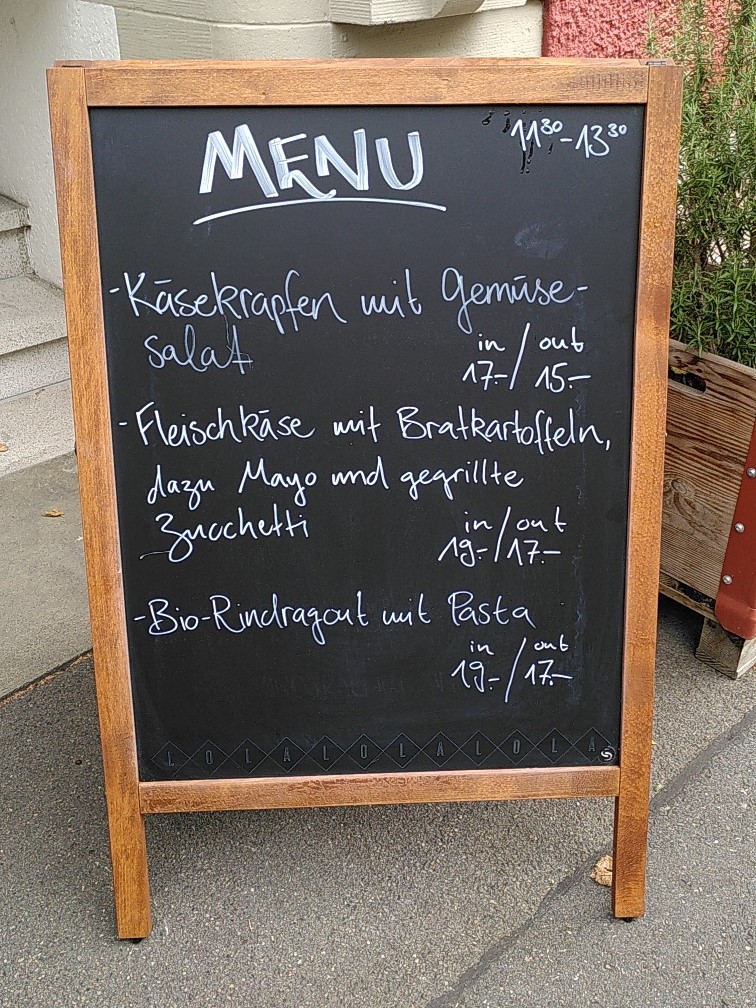 MENU
11³⁰-13³⁰
-Käsekrapfen mit Gemüse-
salat
in / out
17.- / 15.-
-Fleischkäse mit Bratkartoffeln,
dazu Mayo und gegrillte
Zucchetti
in / out
19.- / 17.-
-Bio-Rindragout mit Pasta
in / out
19.- / 17.-
LOLALOLALOLA